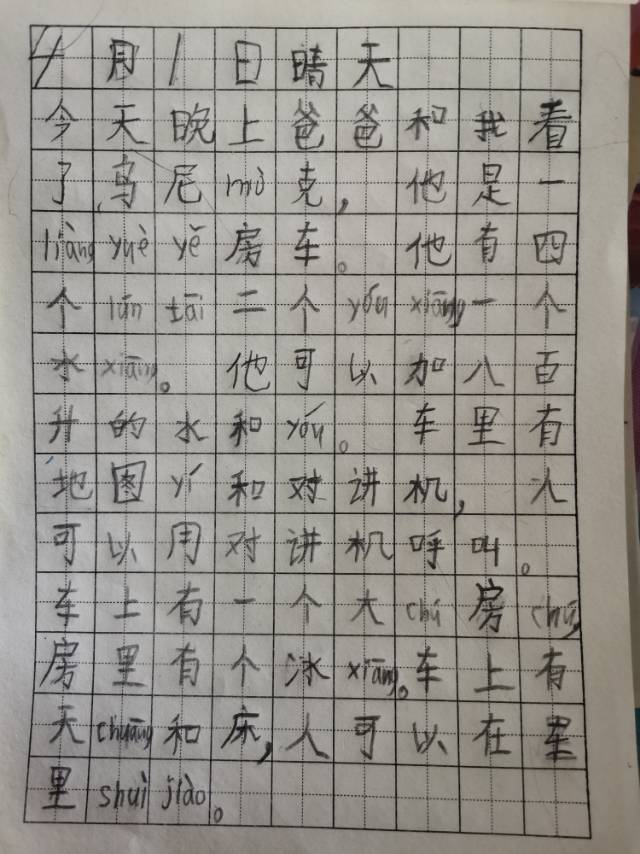 4月1日晴天
今天晚上爸爸和我看
了乌尼mò克，他是一
liàng yuè yě房车。他有四
个lún tāi二个yóu xiāng一个
水xiāng。他可以加八百
升的水和yóu。车里有
地图yí和对讲机，人
可以用对讲机呼叫。
车上有一个大chú房chú
房里有个冰xiāng。车上有
天chuāng和床，人可以在车
里shuì jiào。